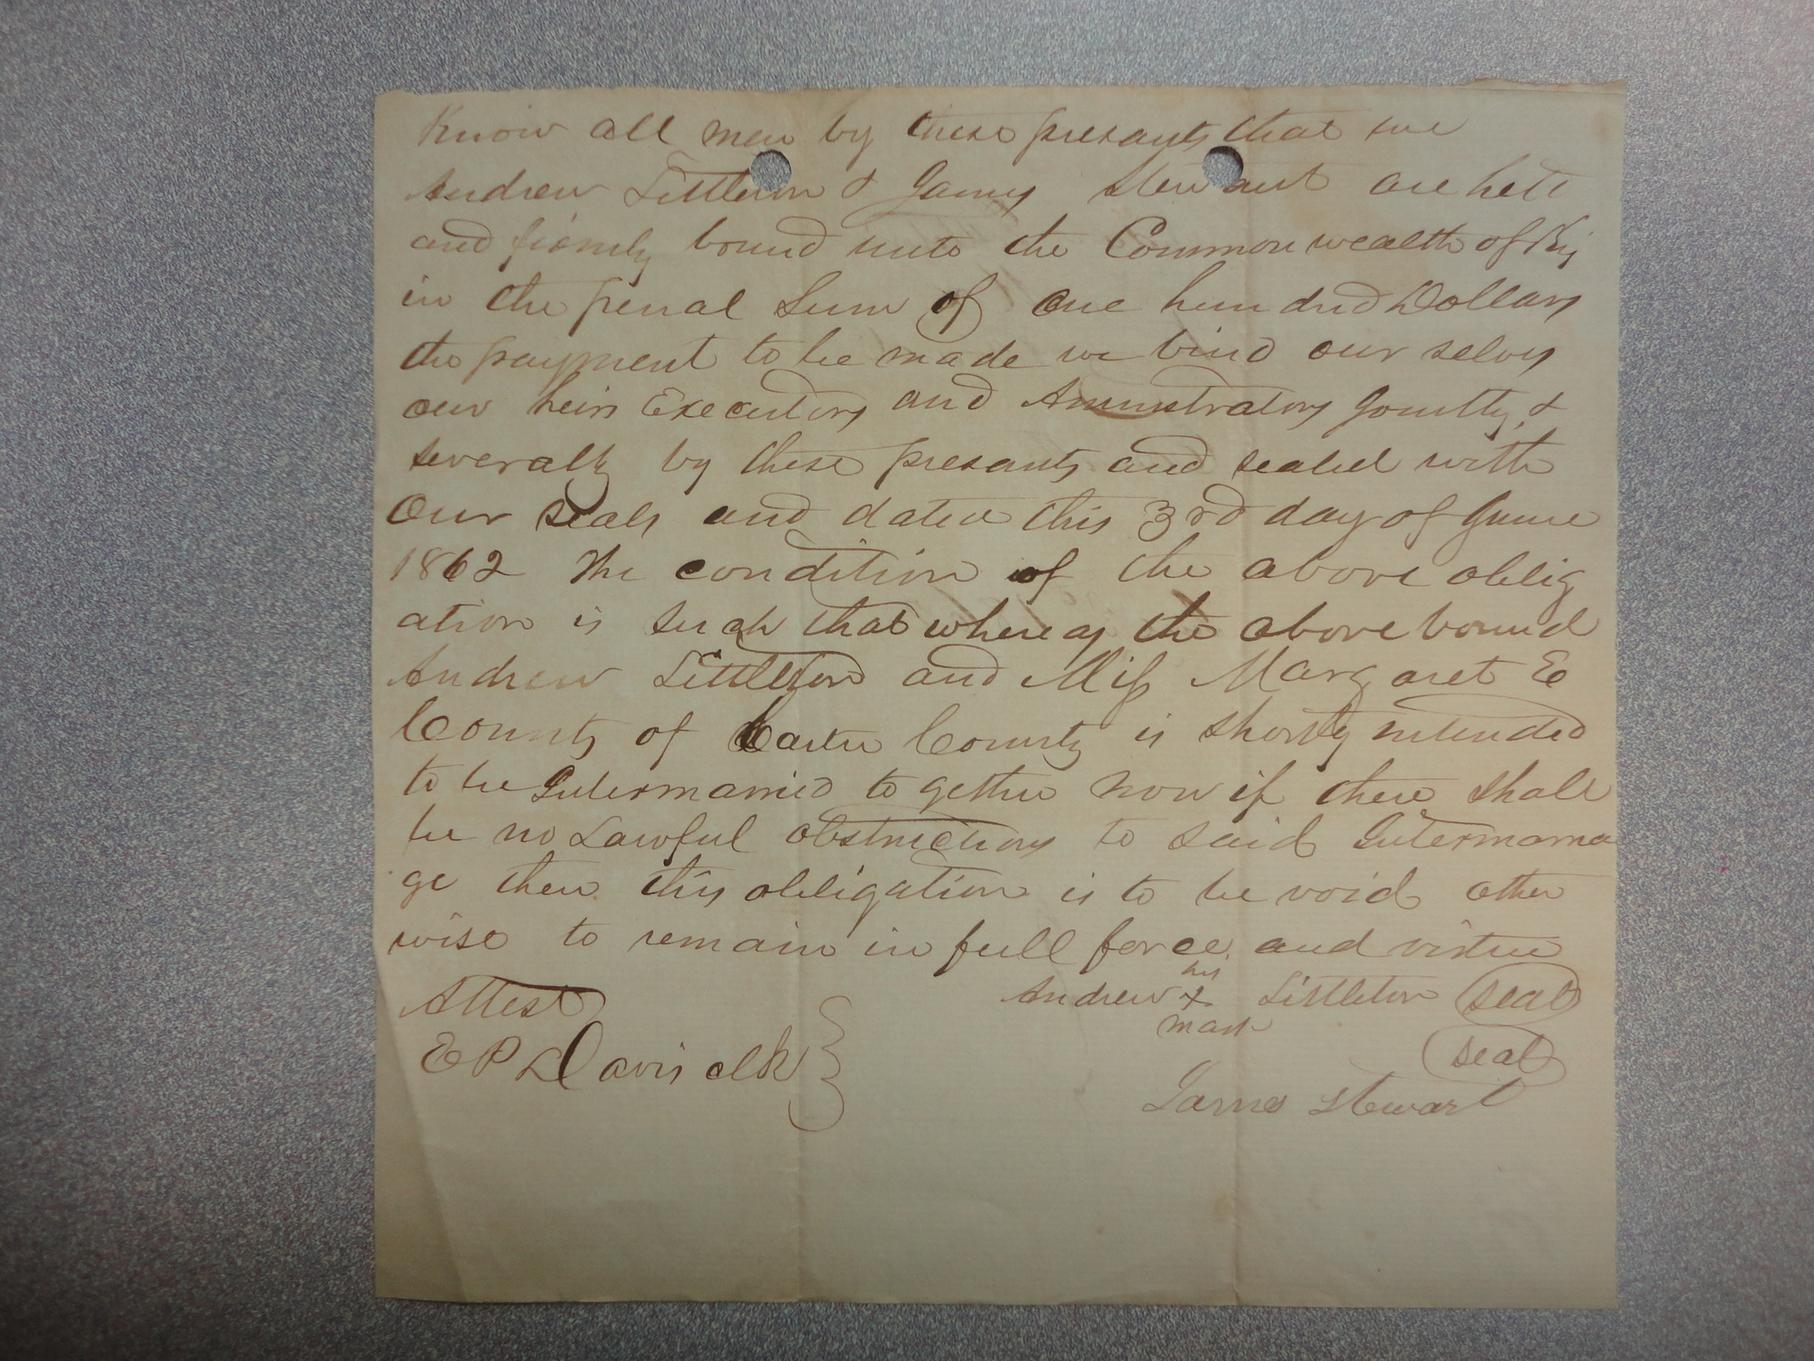 Know all men by these presants that we
Andrew Littleton & James Stewart are held
and firmly bound unto the Commonwealth of Ky
in the penal Sum of one hundred Dollars
the payment to be made we bind our selvs
our heirs Executors and Aministrators Jointly &
severally by these presants and sealed with
Our seals and dated this 3rd day of June
1862 The condition of the above oblig
ation is such that whereas the above bound
Andrew Littleton and Miss Margaret E
County of Carter County is shortly intended
to be Intermarried to gether now if there shall
be no Lawful obstructions to said Intermarria
ge then this obligation is to be void other
wise to remain in full force and virtue
his
Attest Andrew X Littleton seal
mark
seal
E P Davis clk
James Stewart